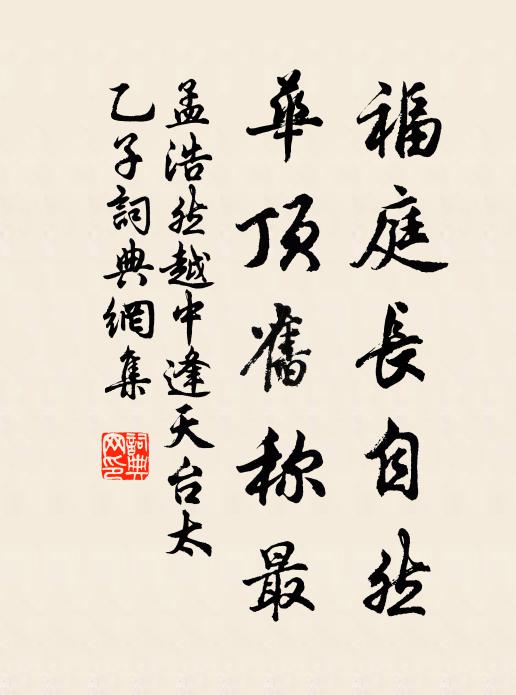 福庭長自然
華頂舊称最
孟浩然越中逢天台太
乙子詞典網集
詞典网印